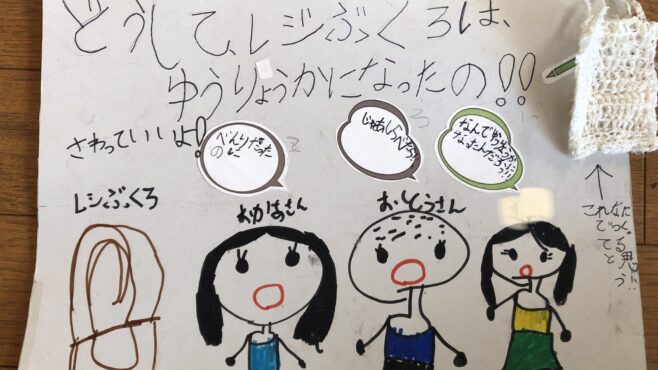 どうして、レジぶくろは、
ゆうりょうかになったの!!
さわっていいよ!
べんりだった
のに
じゃあしら
べたら?
なんでゆうりょうか
なったんだろう
レジぶくろ
おかあさん
おとうさん
これなに
でつく
てると
思う!!